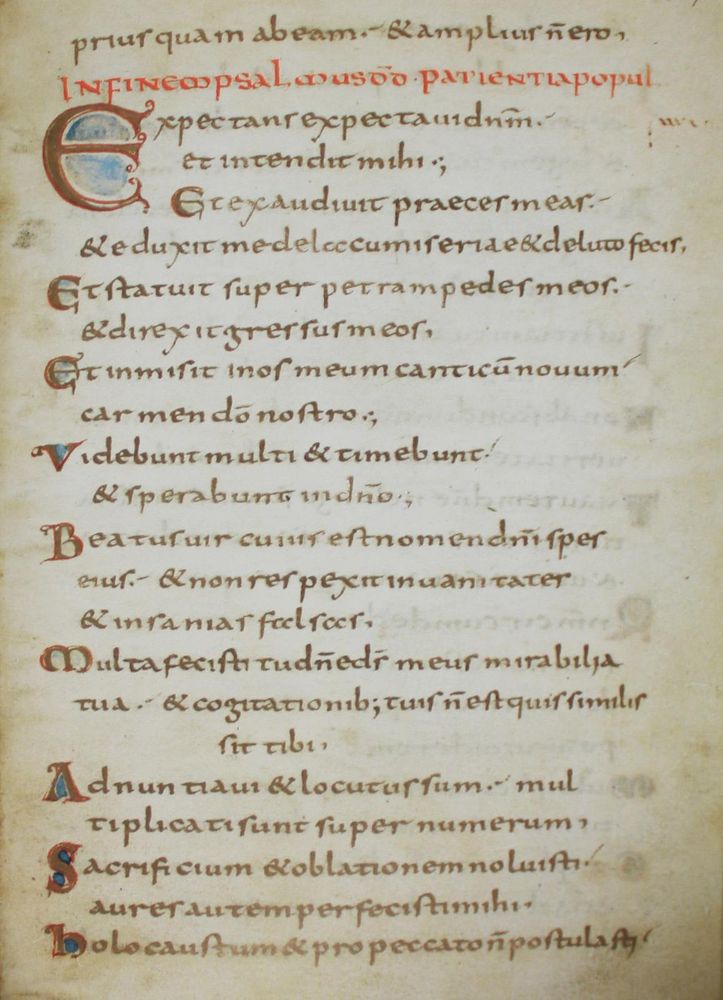 prius quam abeam. & amplius n̄ ero,
IN FINEM PSALMUS DD̄ PATIENTIA POPUL
Expectans expectavi dn̄m.
et intendit mihi.;
Et exaudivit praeces meas.
& eduxit me de laccu miseriae & de luto fecis,
Et statuit super petram pedes meos.
& direxit gressus meos,
Et inmisit in os meum canticū novum
carmen dō nostro.;
Videbunt multi & timebunt.
& sperabunt in dn̄o.;
Beatus vir cuius est nomen dn̄i spes
eius. & non respexit in vanitates
& insanias falsas,
Multa fecisti tu dn̄e ds̄ meus mirabilia
tua. & cogitationib; tuis n̄ est quis similis
sit tibi,
Adnuntiavi & locutus sum. mul
tiplicati sunt super numerum,
Sacrificium & oblationem noluisti.
aures autem perfecisti mihi.
holocaustum & pro peccato n̄ postulasti